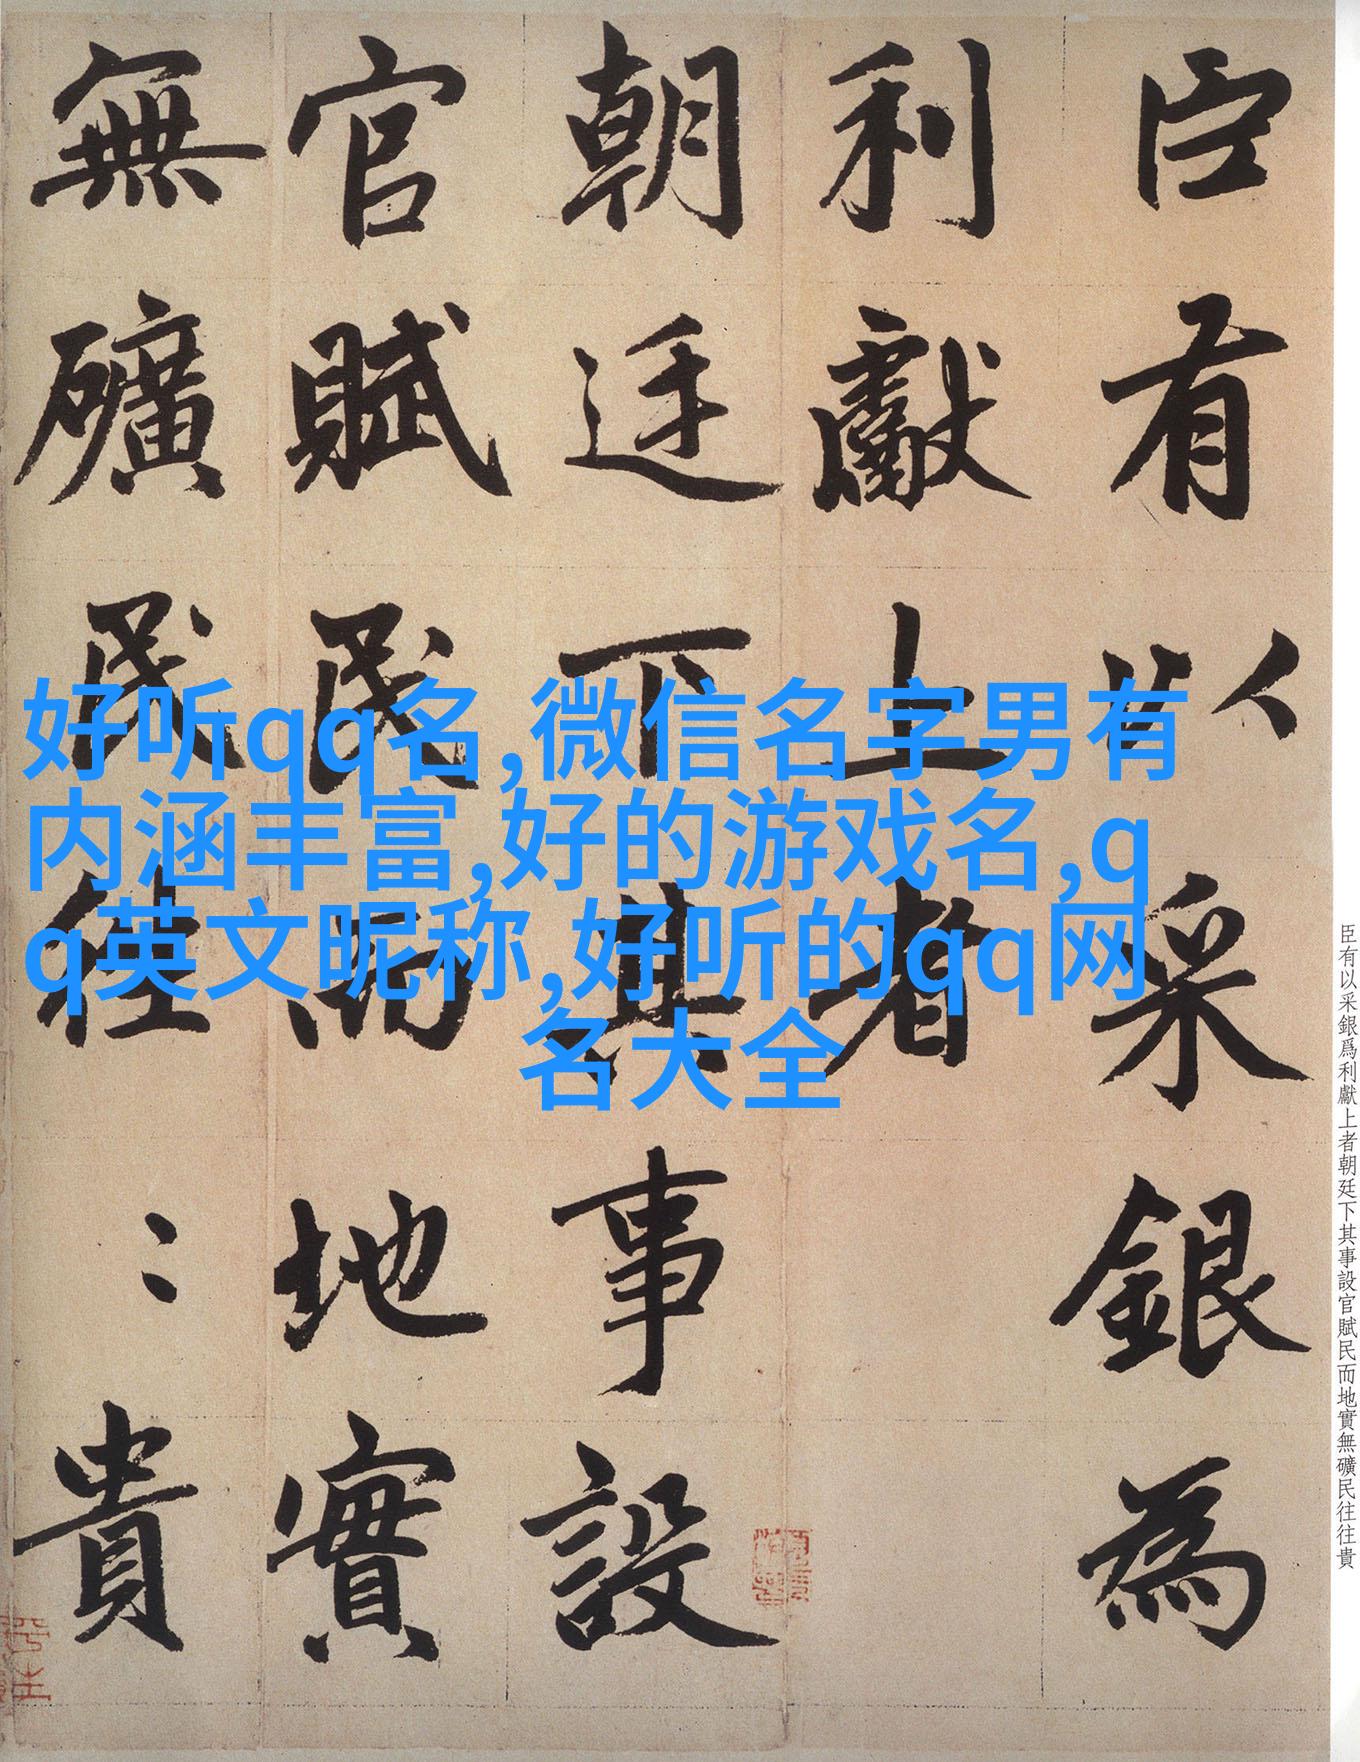 臣有以采銀為
利獻上者
朝廷下其事設
官賦民而地實
無礦民往〻貴
好听qq名,微信名字男有
内涵丰富,好的游戏名,q
q英文昵称,好听的qq网
名大全
臣有以采銀爲利獻上者朝廷下其事設官賦民而地實無礦民往往貴